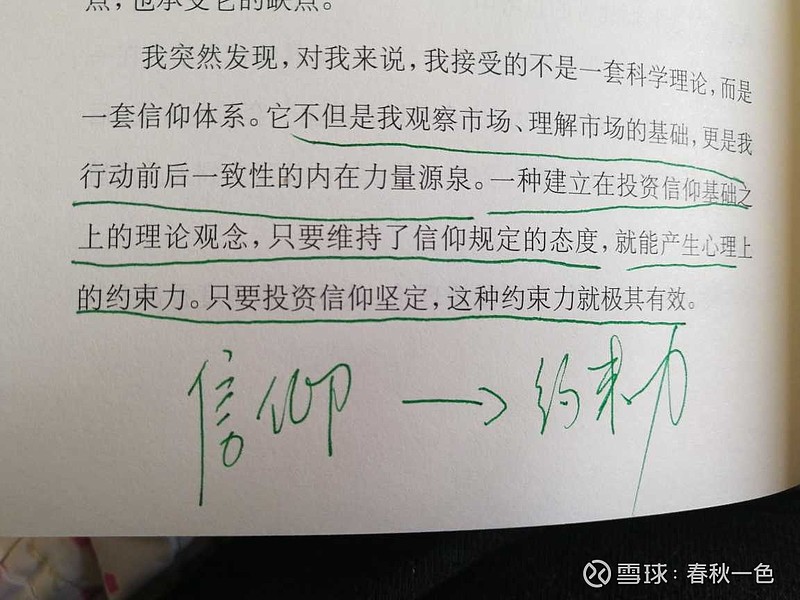 点，也承受它的缺点。
我突然发现，对我来说，我接受的不是一套科学理论，而是
一套信仰体系。它不但是我观察市场、理解市场的基础，更是我
行动前后一致性的内在力量源泉。一种建立在投资信仰基础之
上的理论观念，只要维持了信仰规定的态度，就能产生心理上
的约束力。只要投资信仰坚定，这种约束力就极其有效。
信仰 → 约束力
雪球：春秋一色